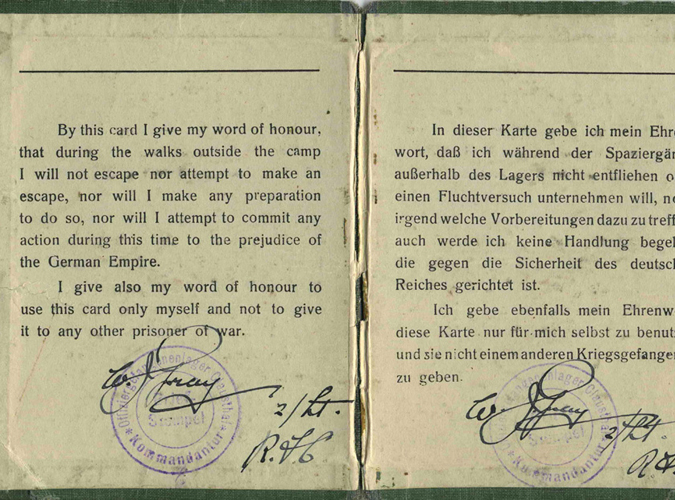 By this card I give my word of honour,
that during the walks outside the camp
I will not escape nor attempt to make an
escape, nor will I make any preparation
to do so, nor will I attempt to commit any
action during this time to the prejudice of
the German Empire.
I give also my word of honour to
use this card only myself and not to give
it to any other prisoner of war.
2/Lt.
R.F.C
Kommandantur
Stempel
In dieser Karte gebe ich mein Ehre
wort, daß ich während der Spaziergän
außerhalb des Lagers nicht entfliehen o
einen Fluchtversuch unternehmen will, n
irgend welche Vorbereitungen dazu zu treff
auch werde ich keine Handlung begeh
die gegen die Sicherheit des deutsch
Reiches gerichtet ist.
Ich gebe ebenfalls mein Ehrenw
diese Karte nur für mich selbst zu benut
und sie nicht einem anderen Kriegsgefangen
zu geben.
2/Lt.
Kommandantur